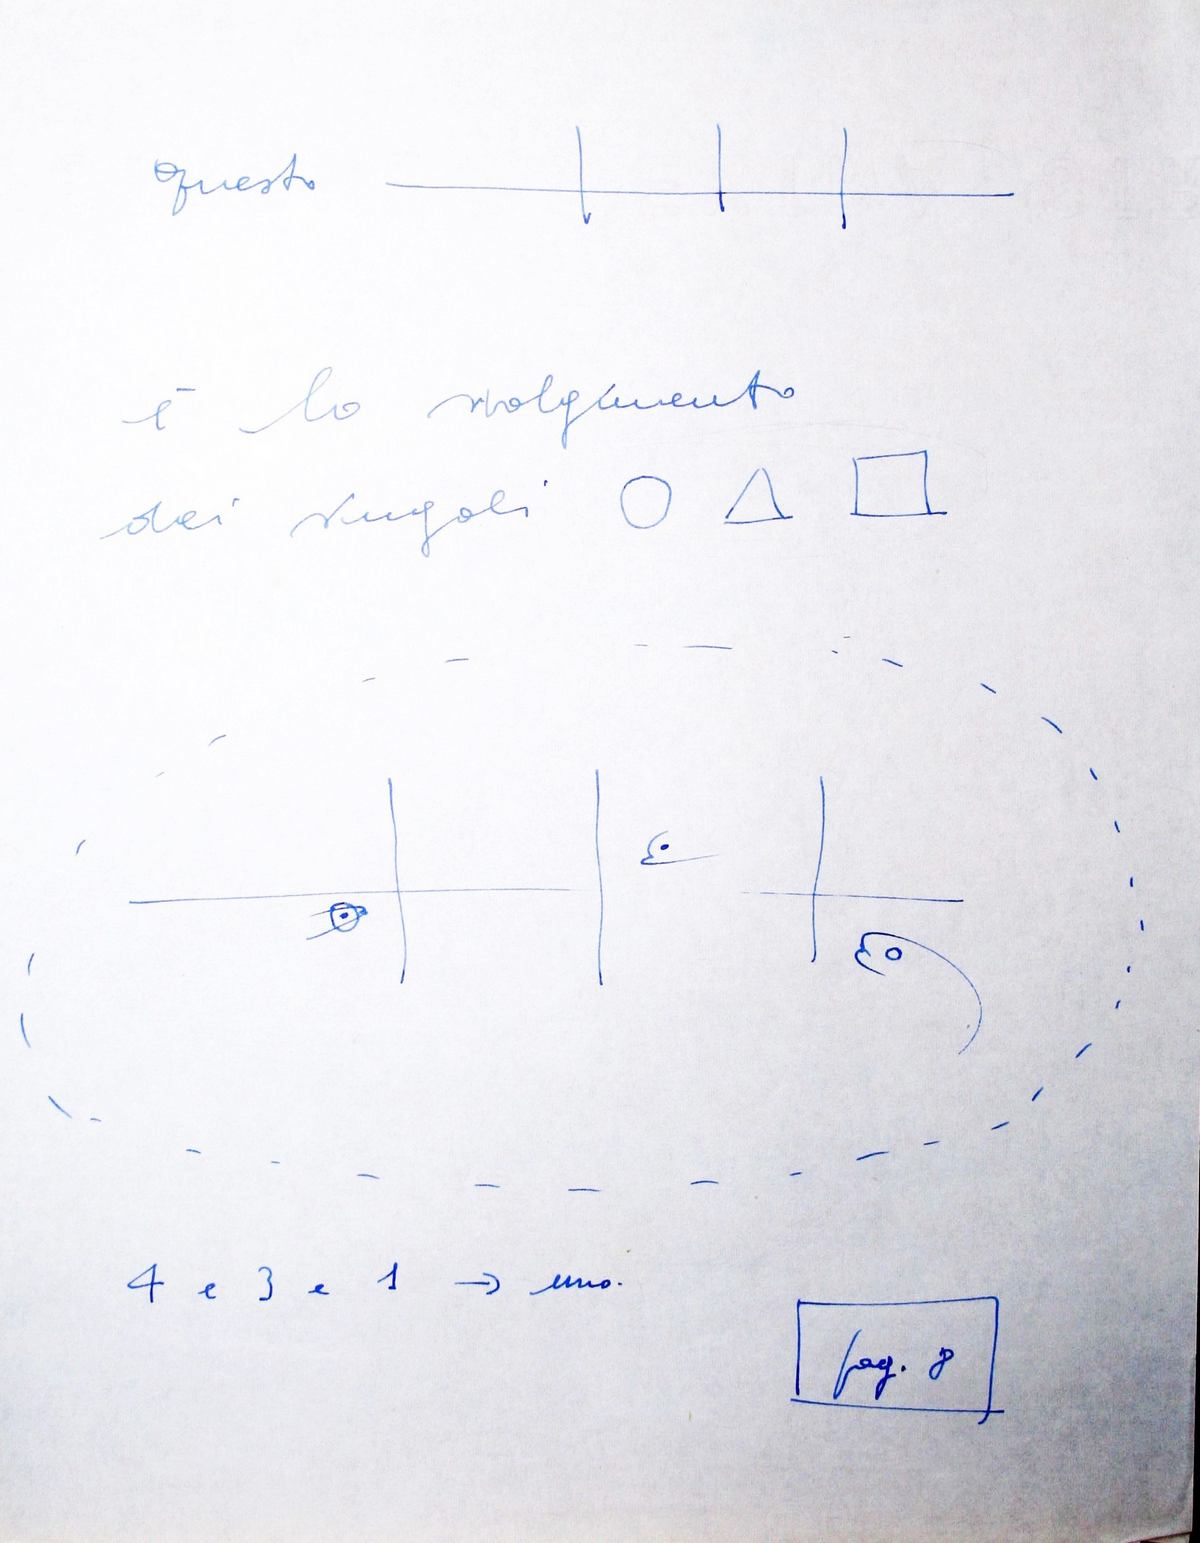 questo
è lo svolgimento
dei singoli
4 e 3 e 1 → uno.
pag. 8